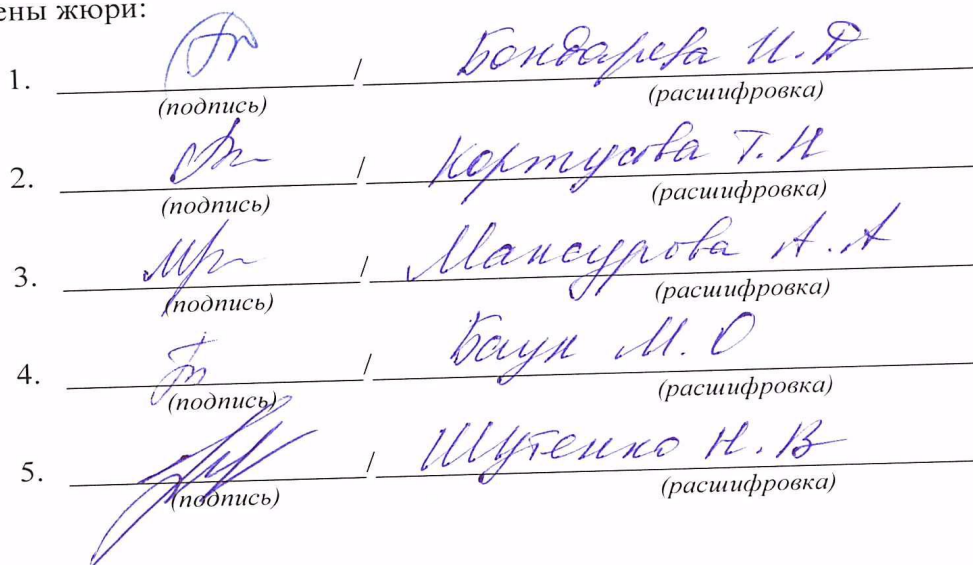 ены жюри:
1. / Бондарева И. Д
(подпись) (расшифровка)
2. / Кортусова Т. Н
(подпись) (расшифровка)
3. / Мансурова А. А
(подпись) (расшифровка)
4. / Баун М. О
(подпись) (расшифровка)
5. / Шутенко Н. В
(подпись) (расшифровка)